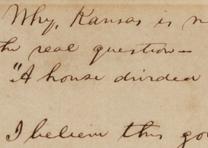 Why, Kansas is n
the real question—
"A house divided
I believe this gov